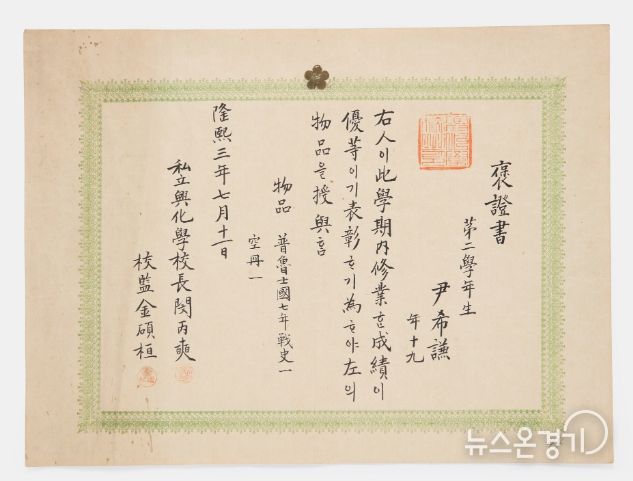 褒證書
第二學年生
尹希謙
年十九
右人이此學期內修業ᄒᆞᆫ成績이
優等이기表彰ᄒᆞ기為ᄒᆞ야左의
物品을授與흠
物品 普魯士國七年戰史一
空冊一
隆熙三年七月十一日
私立興化學校長閔丙奭
校監金碩桓
뉴스온경기